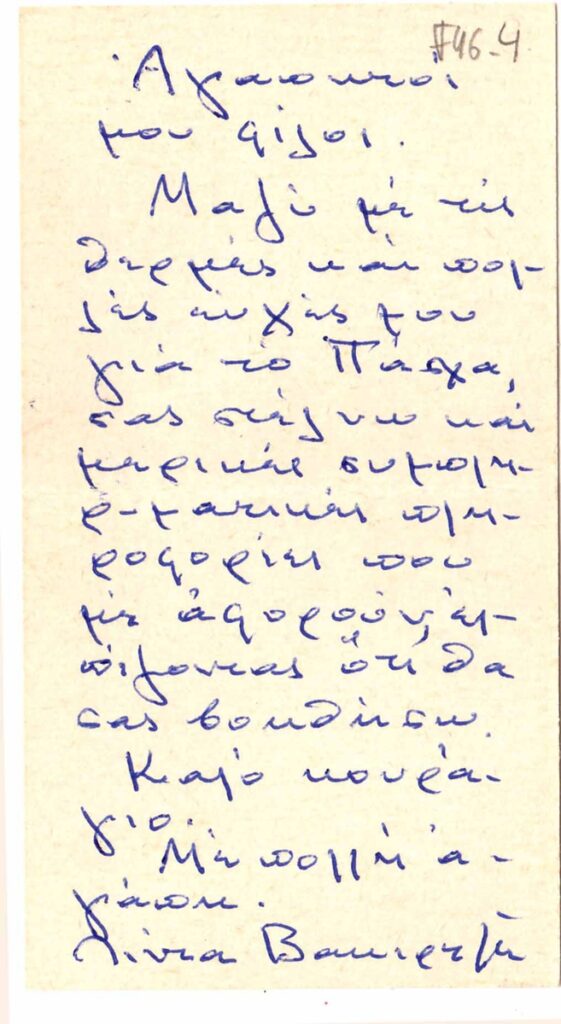 F46-4
Ἀγαπητοί
μου φίλοι.
Μαζί μέ τίς
θερμές καί πολ-
λές εὐχές μου
γιά τό Πάσχα,
σας στέλνω καί
μερικές συμπλη-
ρ-ματικές πλη-
ροφορίες που
μέ ἀφοροῦν, ἐλ-
πίζοντας ὅτι θα
σας βοηθήσω.
Καλό κουρά-
γιο.
Μέ πολλή ἀ-
γάπη.